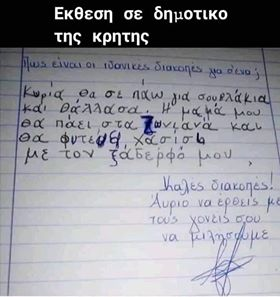 Εκθεση σε δημοτικο
της κρητης
Πως είναι οι ιδανικές διακοπές για σένα;
Κυρία θα σε πάω για σουβλάκια
και θάλλασα. Η μαμά μου
θα πάει στα Ζωνιανά και
θα φυτεψ χασίσι
με τον ξάδερφό μου.
Καλές διακοπές!
Αυριο να έρθεις με
τους γονείς σου
να μιλήσουμε